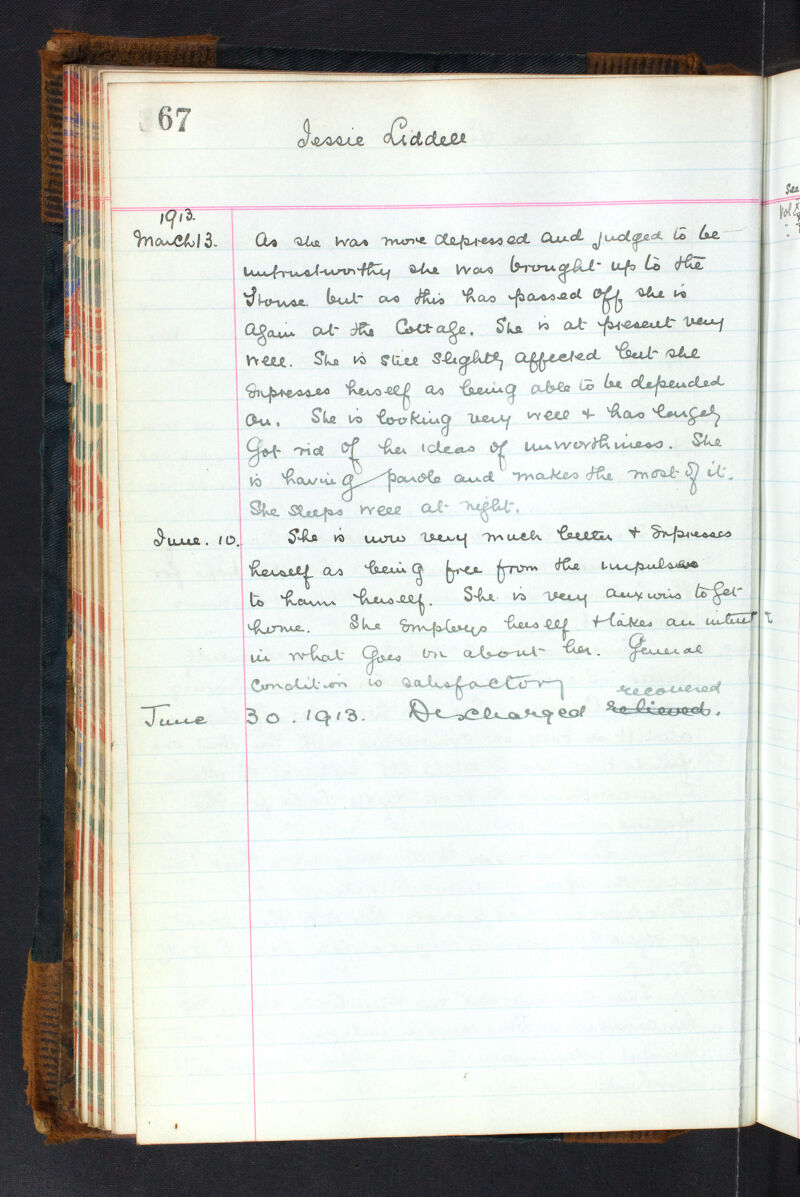 67
Jessie Liddell
1913.
March 13. As she was more depressed and judged to be
untrustworthy she was brought up to the
House but as this has passed off she is
again at the Cottage. She is at present very
well. She is still slightly affected but she
expresses herself as being able to be depended
on. She is looking very well & has largely
got rid of her ideas of unworthiness. She
is having parole and makes the most of it.
She sleeps well at night.
June. 10. She is now very much better & expresses
herself as being free from the impulses
to harm herself. She is very anxious to get
home. She employs herself & takes an interest
in what goes on about her. General
condition is satisfactory
recovered
June 30. 1913. Discharged relieved.
See
Vol